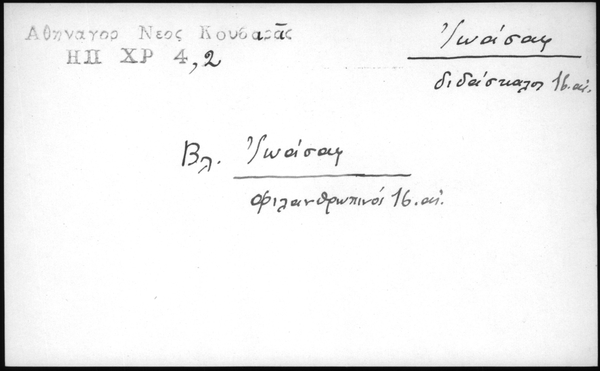 Αθηναγορ Νεος Κουβαρᾶς
ΗΠ ΧΡ 4,2
Ἰωάσαφ
διδάσκαλοι 16. αἰ.
Βλ. Ἰωάσαφ
Φιλανθρωπινόι 16. αἰ.